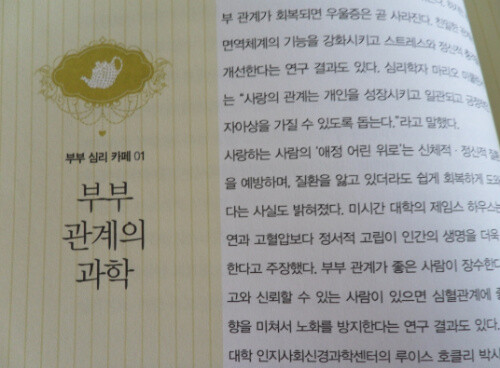 부부 심리 카페 01
부부
관계의
과학
부 관계가 회복되면 우울증은 곧 사라진다. 친밀한
면역체계의 기능을 강화시키고 스트레스와 정신적
개선한다는 연구 결과도 있다. 심리학자 마리오
는 “사랑의 관계는 개인을 성장시키고 일관되고 긍정적
자아상을 가질 수 있도록 돕는다.”라고 말했다.
사랑하는 사람의 ‘애정 어린 위로’는 신체적·정신적 질
을 예방하며, 질환을 앓고 있더라도 쉽게 회복하게 도와
다는 사실도 밝혀졌다. 미시간 대학의 제임스 하우스는
연과 고혈압보다 정서적 고립이 인간의 생명을 더욱
한다고 주장했다. 부부 관계가 좋은 사람이 장수한다
고와 신뢰할 수 있는 사람이 있으면 심혈관계에
향을 미쳐서 노화를 방지한다는 연구 결과도 있다.
대학 인지사회신경과학센터의 루이스 호클리 박사